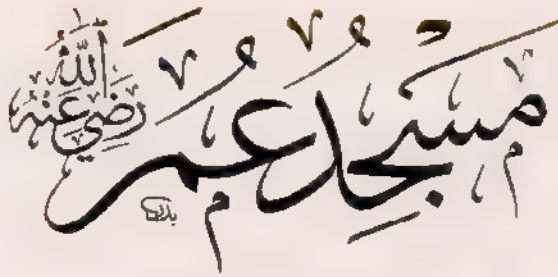 مسجد عمر
رضي الله عنه